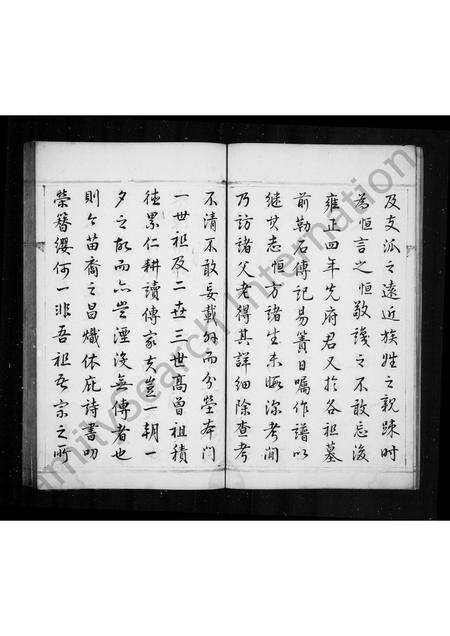 及支派之遠近族姓之親踈時
為恒言之恒敬識之不敢忘後
雍正四年先府君又於各祖墓
前勒石傳記易簀日囑作譜以
継其志恒方諸生未暇深考閒
乃訪諸父老得其詳細除查考
不清不敢妄載外而分塋本門
一世祖及二世三世高曾祖積
徳累仁耕讀傳家夫豈一朝一
夕之故而亦豈湮沒無傳者也
則今苗裔之昌熾依庇詩書叨
榮簪纓何一非吾祖吾宗之所